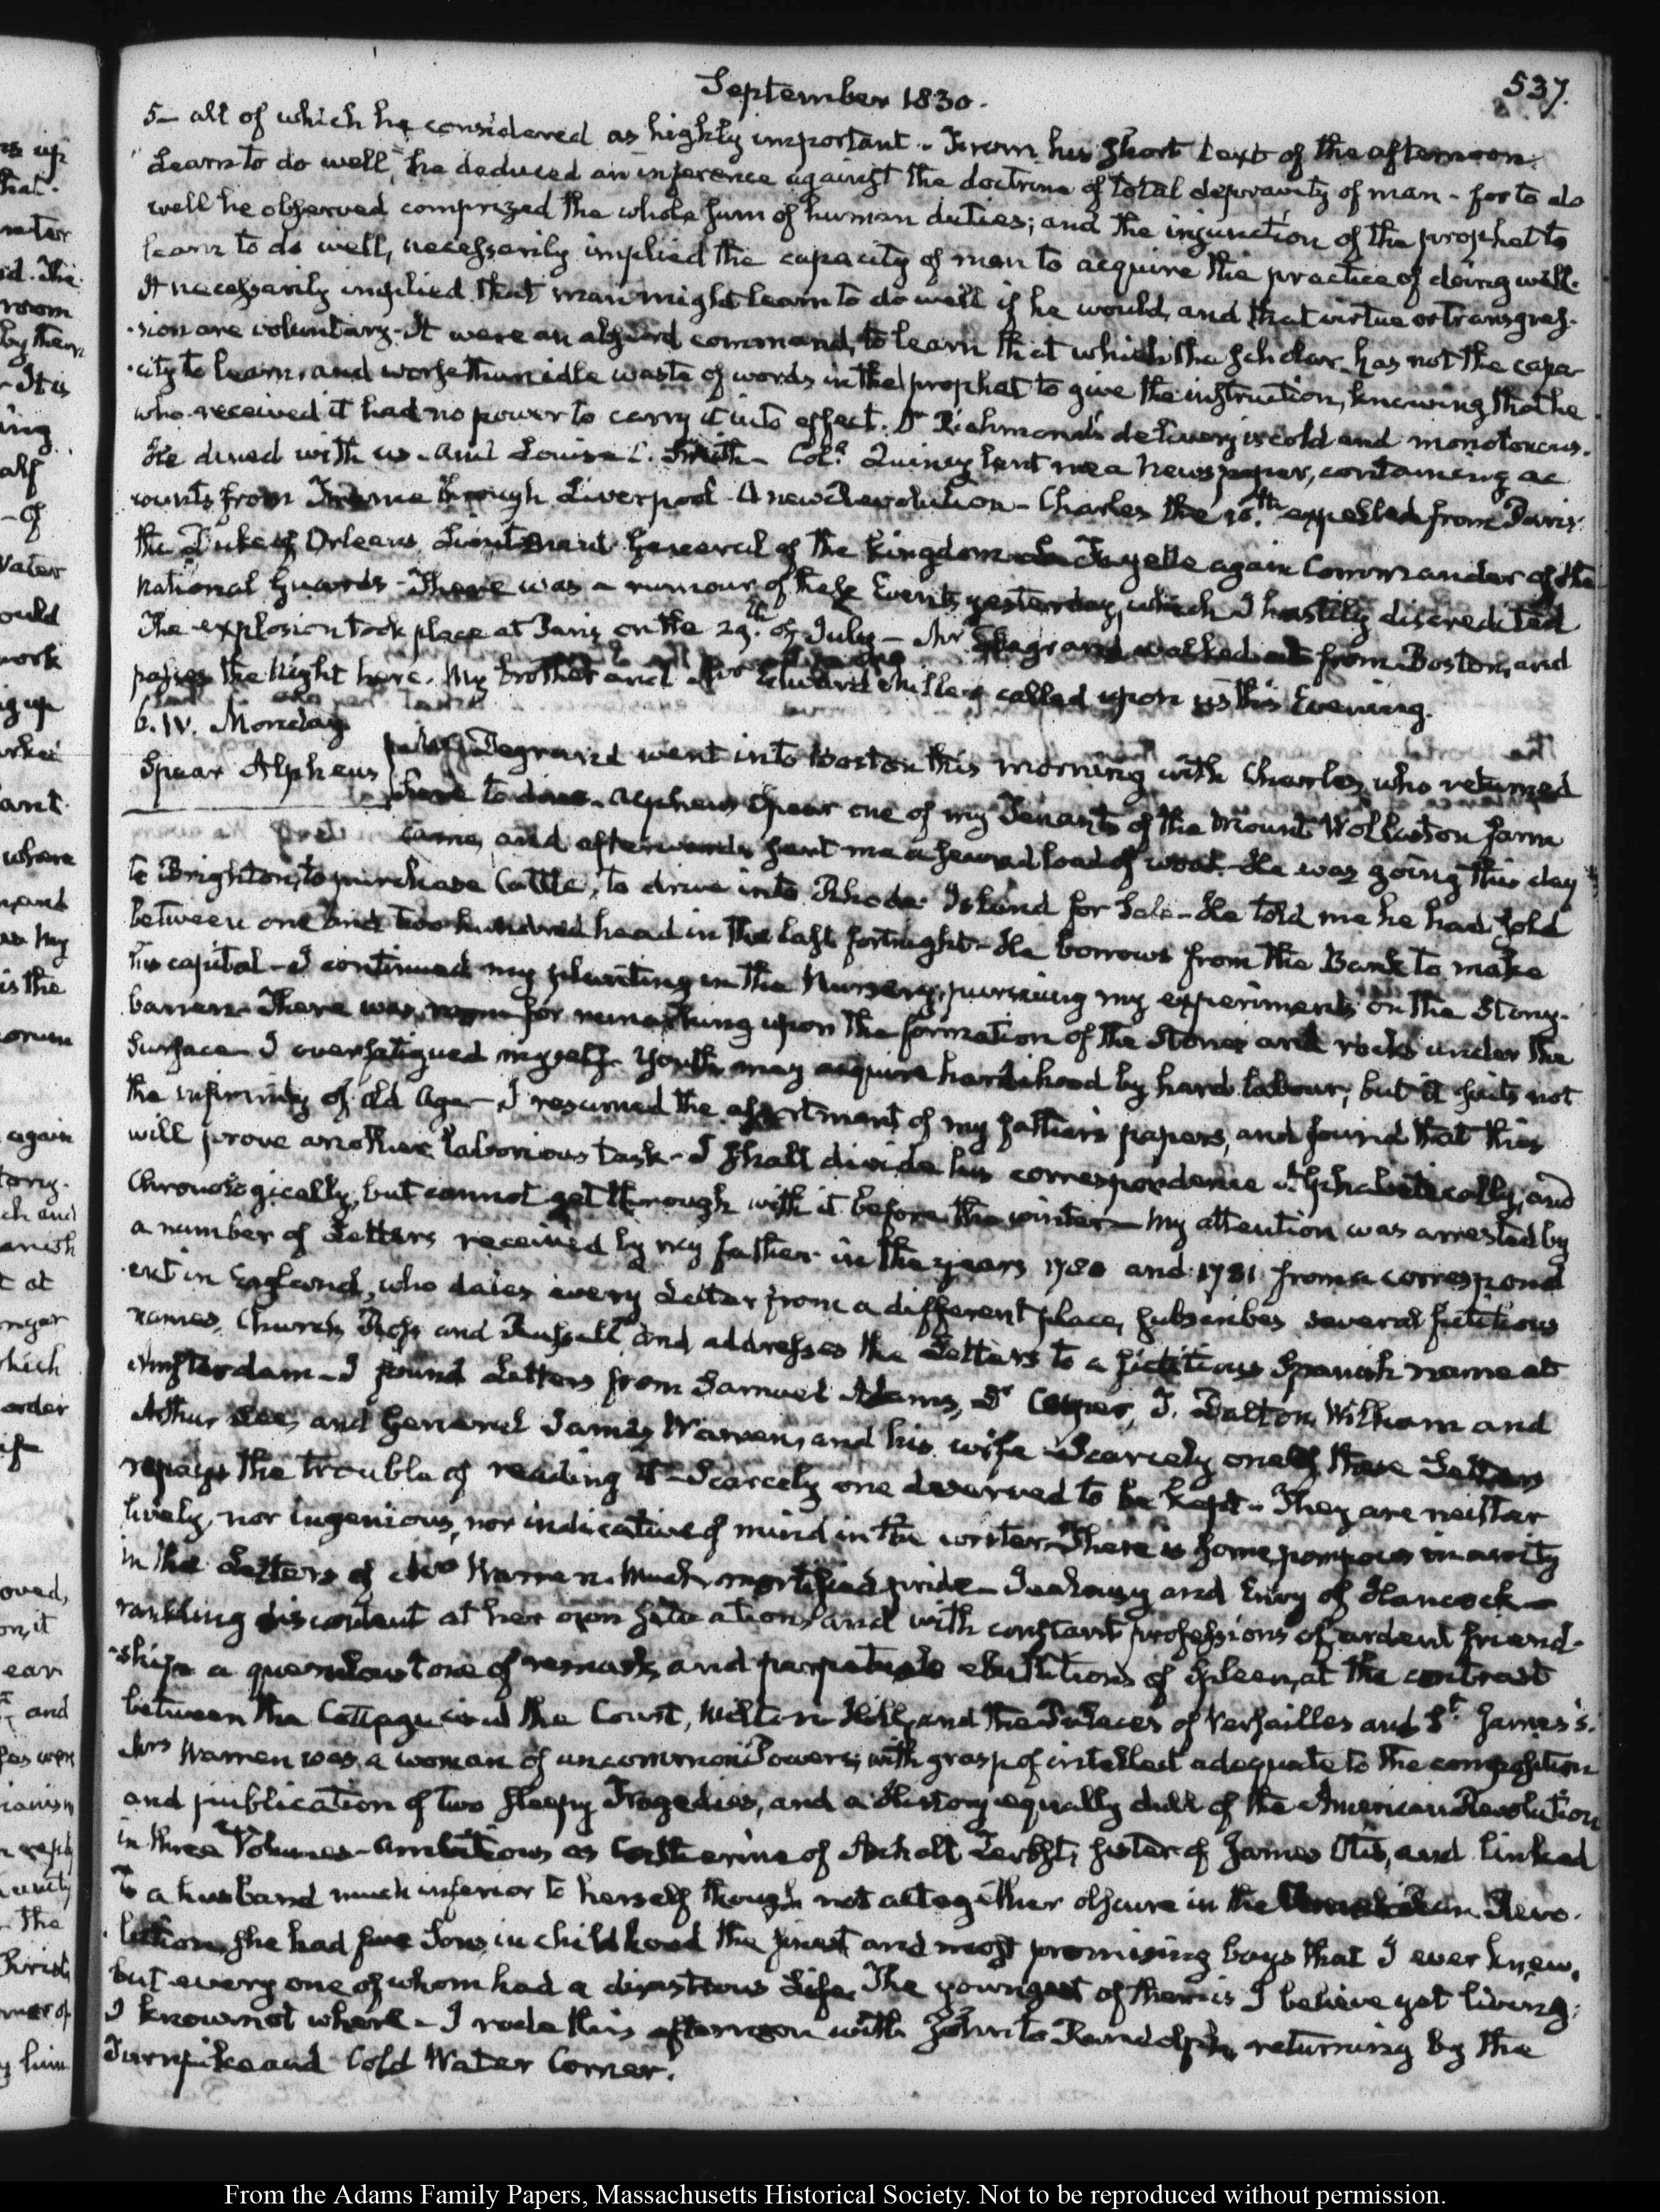 September 1830.
537.
5— all of which he considered as highly important. From his short text of the afternoon.
"Learn to do well," he deduced an inference against the doctrine of total depravity of man - for to do
well he observed comprized the whole sum of human duties; and the injunction of the prophet to
learn to do well, necessarily implied the capacity of man to acquire the practice of doing well.
It necessarily implied that man might learn to do well if he would, and that virtue or transgres-
-sion are voluntary. It were an absurd command, to learn that which the scholar has not the capa-
-city to learn, and worse than idle waste of words in the prophet to give the instruction, knowing that he
who received it had no power to carry it into effect. Dr Richmond's delivery is cold and monotonous.
He dined with us. and Louisa C. Smith - Col.l Quincy sent me a newspaper, containing ac
counts from France through Liverpool. A new Revolution - Charles the 10.th expelled from Paris.
the Duke of Orleans Lieutenant General of the Kingdom La Fayette again Commander of the
National Guards - There was a rumour of these Events yesterday, which I hastily discredited
The explosion took place at Paris on the 29.th of July - Mr Degrand walked out from Boston, and
passes the Night here. My brother and Mrs Edward Miller called upon us this Evening.
6. IV. Monday
Spear Alpheus
Mr Degrand went into Boston this morning with Charles, who returned
here to dine. Alpheus Spear one of my Tenants of the Mount Wollaston farm
came, and afterwards sent me a second load of wood. He was going this day
to Brighton, to purchase Cattle, to drive into Rhode Island for Sale - He told me he had sold
between one and two hundred head in the last fortnight - He borrows from the Bank to make
his capital - I continued my planting in the Nursery, pursuing my experiments on the Stony
barren. There was room for remarking upon the formation of the Stones and rocks under the
Surface - I overfatigued myself. Youth may acquire hardihood by hard labour; but it suits not
the infirmity of old age - I resumed the assortment of my father's papers, and found that this
will prove another laborious task - I shall divide his correspondence Alphabetically, and
Chronologically, but cannot get through with it before the winter - My attention was arrested by
a number of Letters received by my father in the years 1780 and 1781 from a correspond
-ent in England, who dates every Letter from a different place, subscribes several fictitious
names, Church, Ross and Russell and addresses the Letters to a fictitious Spanish name at
Amsterdam - I found Letters from Samuel Adams, Dr Cooper, T. Dalton, William and
Arthur Lee, and General James Warren, and his wife - Scarcely one of these Letters
repays the trouble of reading it - Scarcely one deserved to be kept - They are neither
lively, nor ingenious, nor indicative of mind in the writer. There is some pompous inanity
in the Letters of Mrs Warren. Much mortified pride - Jealousy and Envy of Hancock -
rankling discontent at her own situation and with constant professions of ardent friend-
-ship a querulous tone of remark, and perpetual ebullitions of spleen, at the contrast
between the Cottage and the Court, Milton Hill, and the Palaces of Versailles and St James's.
Mrs Warren was a woman of uncommon Powers; with grasp of intellect adequate to the composition
and publication of two sleepy Tragedies, and a History equally dull of the American Revolution
in three Volumes - ambitious as Catherine of Anhalt Zerbst, sister of James Otis, and linked
to a husband much inferior to herself though not altogether obscure in the American Revo-
-lution, she had five Sons, in childhood the finest and most promising boys that I ever knew,
but every one of whom had a disastrous Life. The youngest of them is I believe yet living;
I know not where - I rode this afternoon with John to Randolph, returning by the
Turnpike and Cold Water Corner.
From the Adams Family Papers, Massachusetts Historical Society. Not to be reproduced without permission.